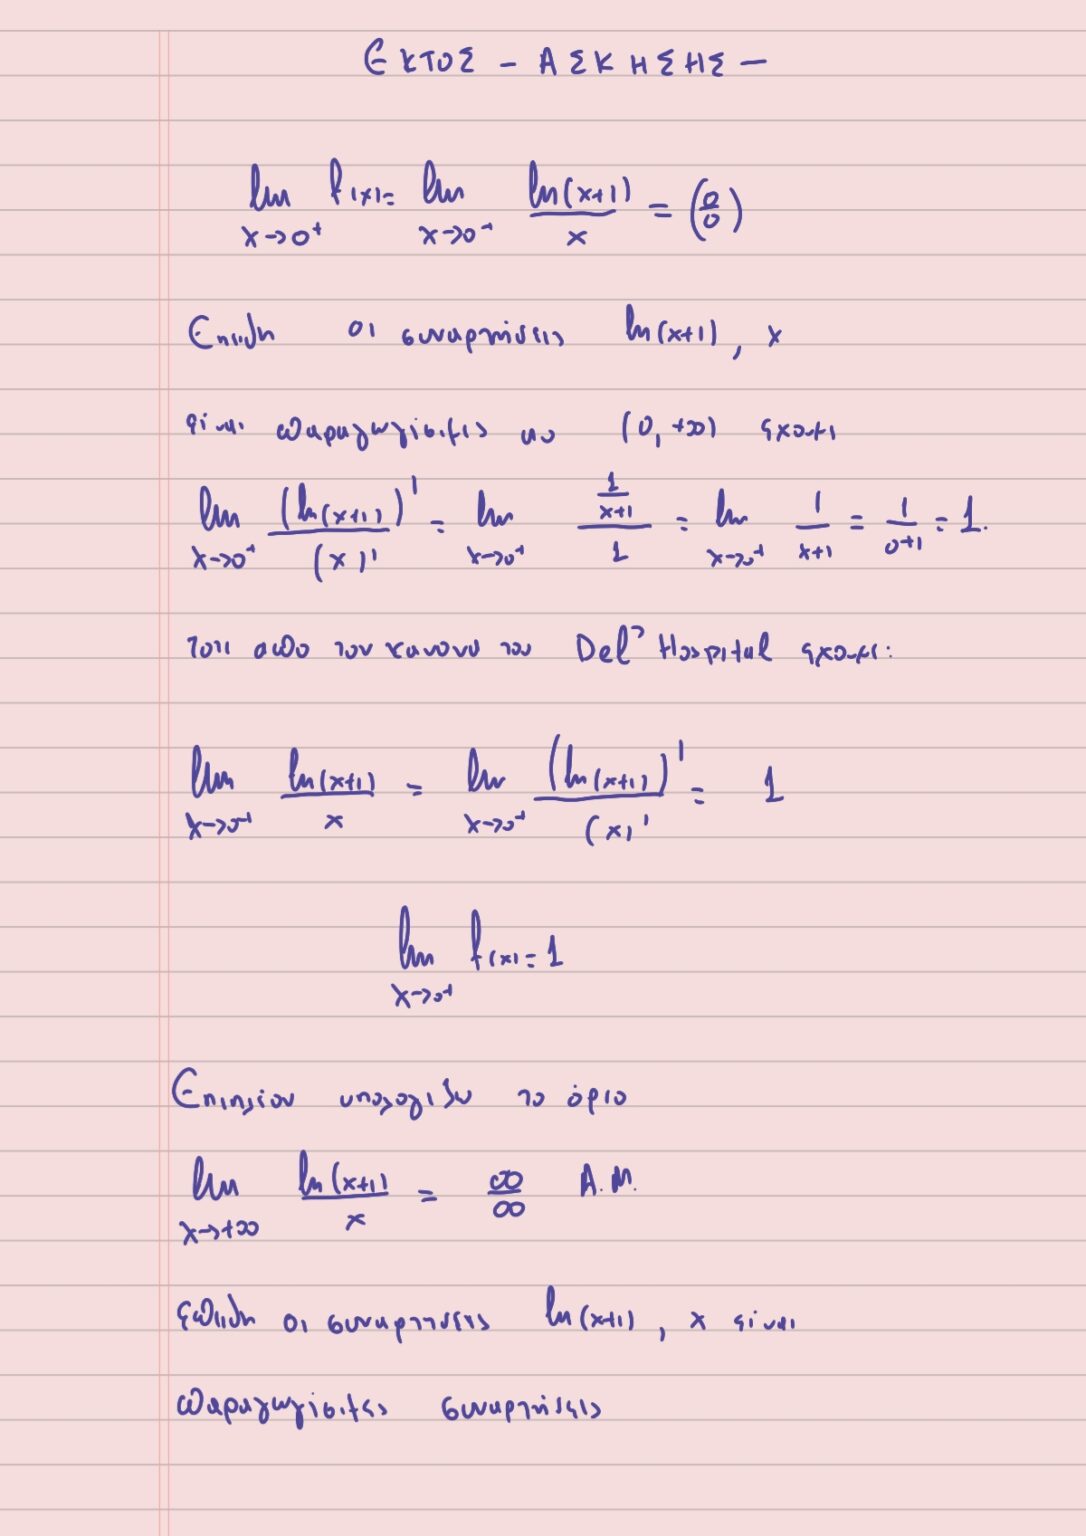 ΕΚΤΟΣ - ΑΣΚΗΣΗΣ -
lim x→0⁺ f(x) = lim x→0⁺ ln(x+1)/x = (0/0)
Επειδή οι συναρτήσεις ln(x+1), x
είναι παραγωγίσιμες στο (0, +∞) έχουμε
lim x→0⁺ (ln(x+1))'/(x)' = lim x→0⁺ (1/(x+1))/1 = lim x→0⁺ 1/(x+1) = 1/(0+1) = 1.
τότε από τον κανόνα του Del' Hospital έχουμε:
lim x→0⁺ ln(x+1)/x = lim x→0⁺ (ln(x+1))'/(x)' = 1
lim x→0⁺ f(x) = 1
Επιπλέον υπολογίζω το όριο
lim x→+∞ ln(x+1)/x = ∞/∞ Α.Μ.
επειδή οι συναρτήσεις ln(x+1), x είναι
παραγωγίσιμες συναρτήσεις